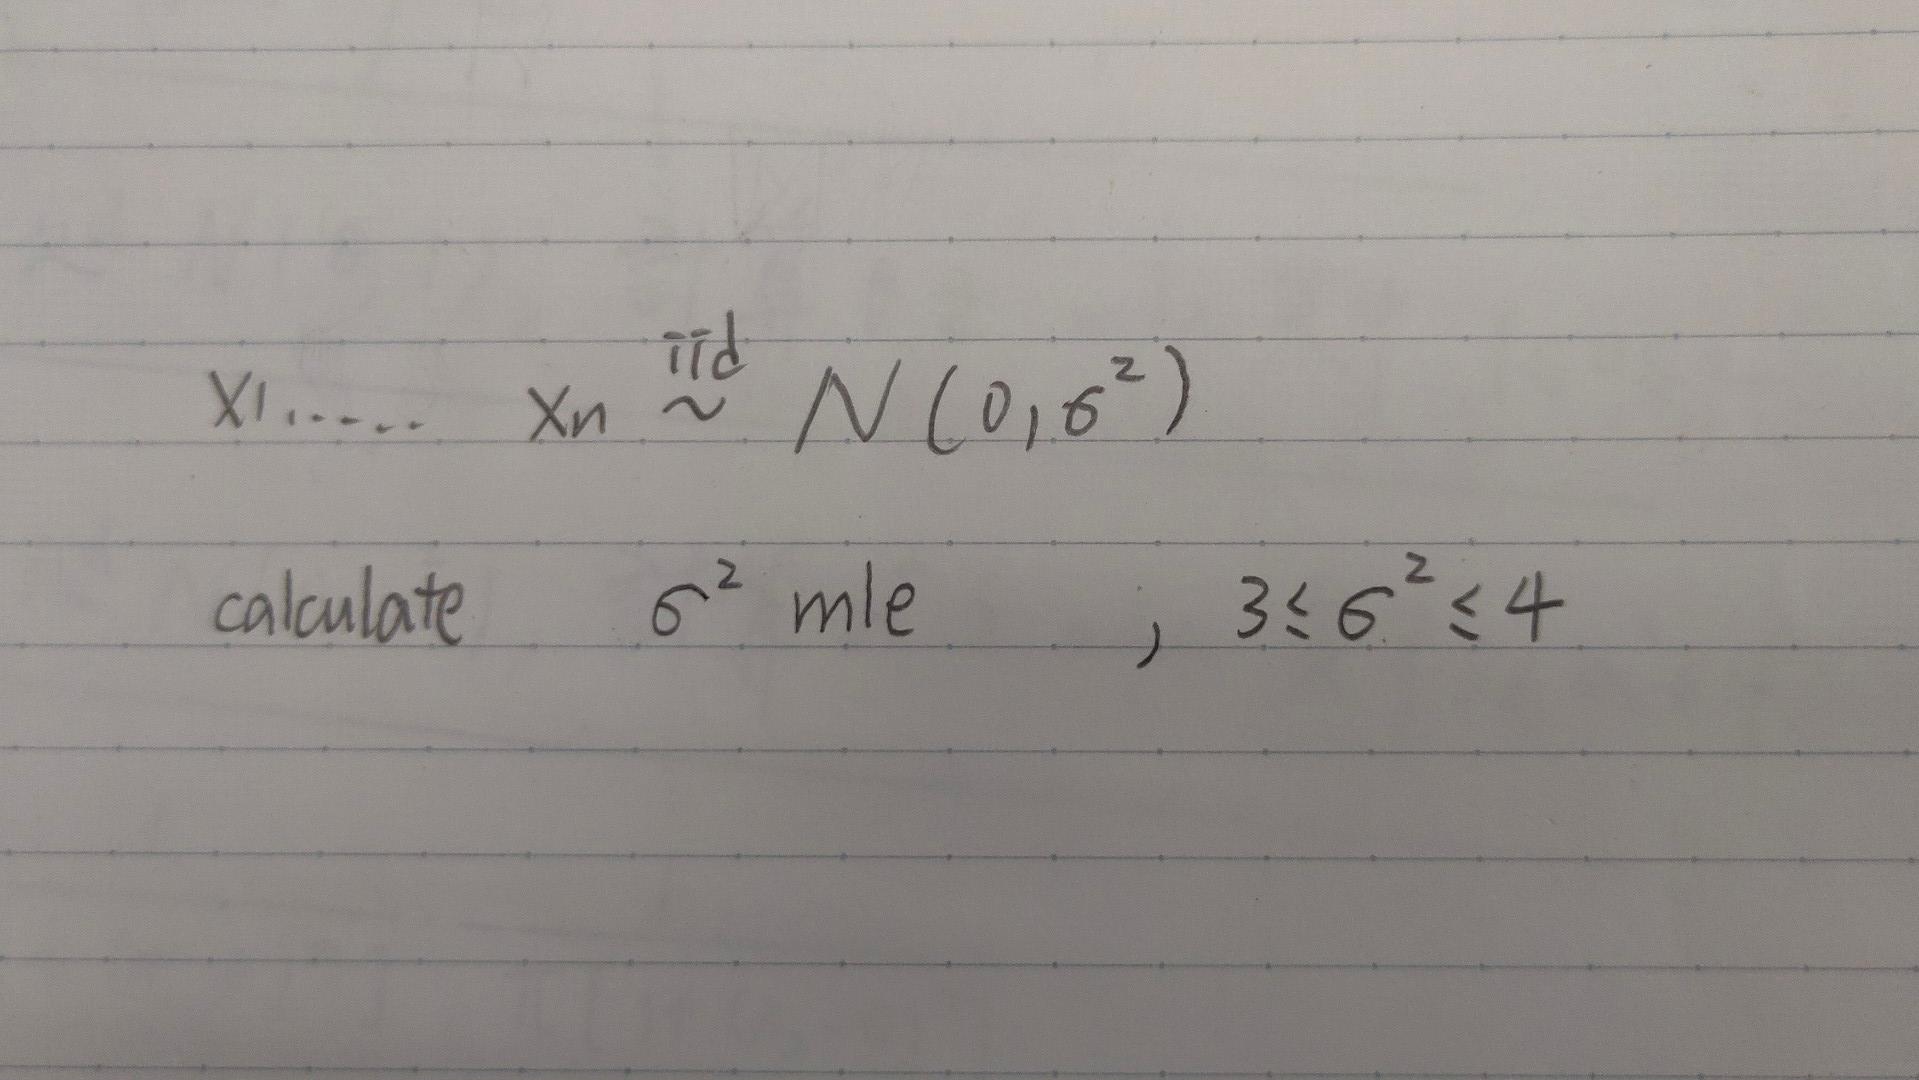 X1, ..... Xn iid ~ N(0, σ²)
calculate σ² mle , 3 ≤ σ² ≤ 4